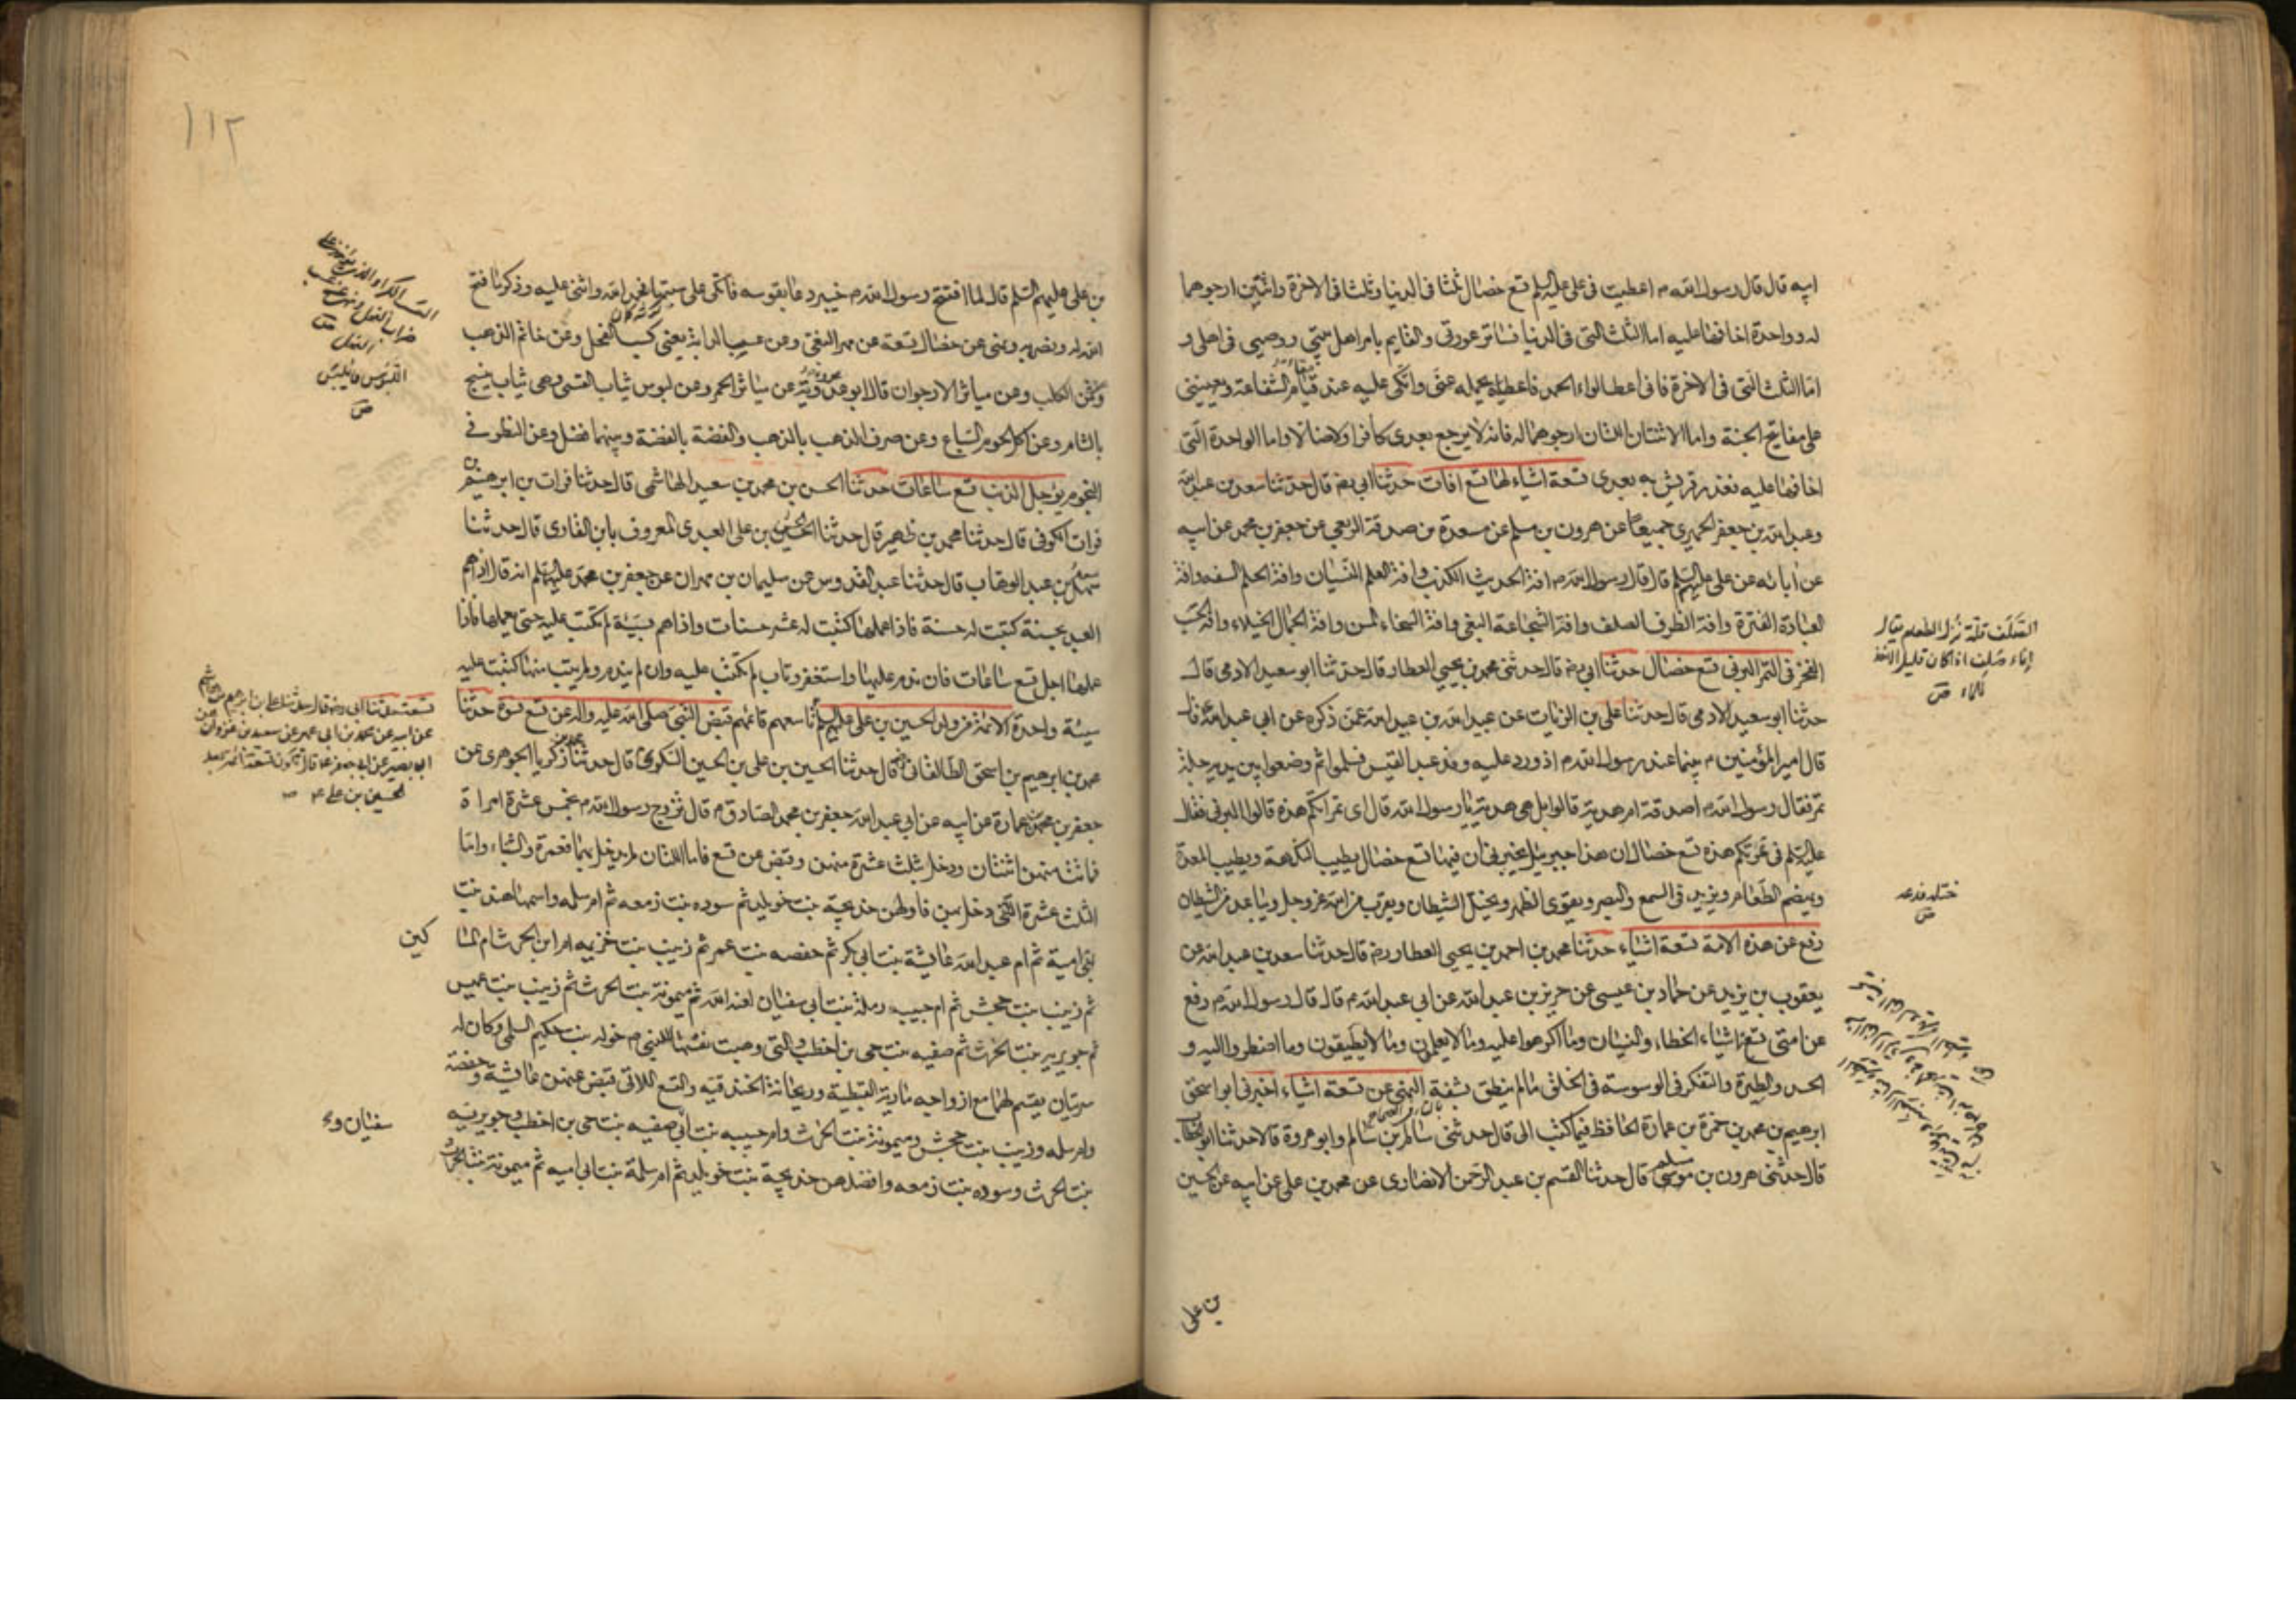 ابيه قال قال رسول الله م اعطيت فى على عليه السلم تسع خصال ثلثا فى الدنيا وثلثا فى الاخرة واثنتين ارجوهما
له وواحدة اخافها عليه اما الثلث التى فى الدنيا فساتر عورتى والقايم بامر اهل بيتى ووصيى فى اهلى و
اما الثلث التى فى الاخرة فانى اعطى لواء الحمد فاعطيه يحمله عنى واتكى عليه عند قيام الشفاعة ويعيننى
على مفاتيح الجنة واما الاثنتان اللتان ارجوهما له فانه لا يرجع بعدى كافرا ولا ضالا واما الواحدة التى
اخافها عليه فغدر قريش به بعدى تسعة اشياء لها تسع افات حدثنا ابى رضه قال حدثنا سعد بن عبد الله
وعبد الله بن جعفر الحميرى جميعا عن هرون بن مسلم عن مسعدة بن صدقة الربعى عن جعفر بن محمد عن ابيه
عن ابائه عن على عليهم السلم قال قال رسول الله م افة الحديث الكذب وافة العلم النسيان وافة الحلم السفه وافة
العبادة الفترة وافة الظرف الصلف وافة الشجاعة البغى وافة السخاء المن وافة الجمال الخيلاء وافة الحسب
الفخر فى التمر البرنى تسع خصال حدثنا ابى رضه قال حدثنى محمد بن يحيى العطار قال حدثنا ابو سعيد الادمى قال
حدثنا ابو سعيد الادمى قال حدثنا على بن الزيات عن عبيد الله بن عبد الله عمن ذكره عن ابى عبد الله ع قال
قال امير المؤمنين م بينما عند رسول الله م اذ ورد عليه وفد عبد القيس فسلموا ثم وضعوا بين يديه جلة
تمر فقال رسول الله م اصدقة ام هدية قالوا بل هى هدية يا رسول الله قال اى تمراتكم هذه قالوا البرنى فقال
عليه السلم فى تمرتكم هذه تسع خصال ان هذا جبرئيل يخبرنى ان فيها تسع خصال يطيب النكهة ويطيب المعدة
ويهضم الطعام ويزيد فى السمع والبصر ويقوى الظهر ويختل الشيطان ويقرب من الله عز وجل ويباعد من الشيطان
رفع عن هذه الامة تسعة اشياء حدثنا محمد بن احمد بن يحيى العطار رضه قال حدثنا سعد بن عبد الله عن
يعقوب بن يزيد عن حماد بن عيسى عن حريز بن عبد الله عن ابى عبد الله م قال قال رسول الله م رفع
عن امتى تسعة اشياء الخطاء والنسيان وما اكرهوا عليه وما لا يعلمون وما لا يطيقون وما اضطروا اليه و
الحسد والطيرة والتفكر فى الوسوسة فى الخلق ما لم ينطق بشفة النهى عن تسعة اشياء اخبرنى ابو اسحق
ابرهيم بن محمد بن حمزة بن عمارة الحافظ فيما كتب الى قال حدثنى سالم بن سالم وابو عروة قالا حدثنا ابو الخطاب
قال حدثنى هرون بن موسى قال حدثنا القسم بن عبد الرحمن الانصارى عن محمد بن على عن ابيه عن الحسين
الصلف قلة نزل الطعام يقال
اناء صلف اذا كان قليل الاخذ
للماء ص
ختله خدعه
ص
بن على
١١٢
بن على عليهم السلم قال لما افتتح رسول الله م خيبر دعا بقوسه فاتكى على سيتها فحمد الله واثنى عليه وذكر ما فتح
الله له ونصره به ونهى عن خصال تسعة عن مهر البغى وعن عسيب الدابة يعنى كسب الفحل وعن خاتم الذهب
وعن ثمن الكلب وعن مياثر الارجوان قال ابو عروبة عن مياثر الحمر وعن لبوس ثياب القسى وهى ثياب ينسج
بالشام وعن اكل لحوم السباع وعن صرف الذهب بالذهب والفضة بالفضة وبينهما فضل وعن النظر فى
النجوم يؤجل المذنب تسع ساعات حدثنا الحسن بن محمد بن سعيد الهاشمى قال حدثنا فرات بن ابرهيم بن
فرات الكوفى قال حدثنا محمد بن ظهير قال حدثنا الحسين بن على العبدى المعروف بابن القارى قال حدثنا
سهل بن عبد الوهاب قال حدثنا عبد القدوس عن سليمان بن مهران عن جعفر بن محمد عليهما السلم انه قال اذا هم
العبد بحسنة كتبت له حسنة فاذا عملها كتبت له عشر حسنات واذا هم بسيئة لم تكتب عليه حتى يعملها فاذا
عملها اجل تسع ساعات فان ندم عليها واستغفر وتاب لم تكتب عليه وان لم يندم ولم يتب منها كتبت عليه
سيئة واحدة الائمة من ولد الحسين بن على عليهم السلم تاسعهم قائمهم قبض النبى صلى الله عليه واله عن تسع نسوة حدثنا
محمد بن ابرهيم بن اسحق الطالقانى رضه قال حدثنا الحسين بن على بن الحسين السكرى قال حدثنا محمد بن زكريا الجوهرى عن
جعفر بن محمد بن عمارة عن ابيه عن ابى عبد الله جعفر بن محمد الصادق م قال تزوج رسول الله م بخمس عشرة امراة
ماتت منهن اثنتان ودخل بثلث عشرة منهن وقبض عن تسع فاما اللتان لم يدخل بهما فعمرة والشباء واما
الثلث عشرة اللاتى دخل بهن فاولهن خديجة بنت خويلد ثم سوده بنت زمعه ثم ام سلمه واسمها هند بنت
ابى امية ثم ام عبد الله عايشة بنت ابى بكر ثم حفصه بنت عمر ثم زينب بنت خزيمه ام المساكين
ثم زينب بنت جحش ثم ام حبيب رملة بنت ابى سفيان لعنه الله ثم ميمونة بنت الحرث ثم زينب بنت عميس
ثم جويريه بنت الحرث ثم صفيه بنت حى بن اخطب والتى وهبت نفسها للنبى م خوله بنت حكيم السلمى وكان له
سريتان يقسم لهما مع ازواجه مارية القبطية وريحانة الخندقيه والتسع اللاتى قبض عنهن عايشة وحفصة
وام سلمه وزينب بنت جحش وميمونة بنت الحرث وام حبيبه بنت ابى صفيه بنت حى بن اخطب وجويريه
بنت الحرث وسوده بنت زمعه وافضلهن خديجة بنت خويلد ثم ام سلمة بنت ابى اميه ثم ميمونة بنت الحرث
تسعة حدثنا ابى رضه قال حدثنا على بن ابرهيم بن هاشم
عن ابيه عن محمد بن ابى عمير عن سعيد بن غزوان عن
ابى بصير عن ابى جعفر ع قال تكون تسعة ائمة بعد
الحسين بن على ع
كين
سفيان و